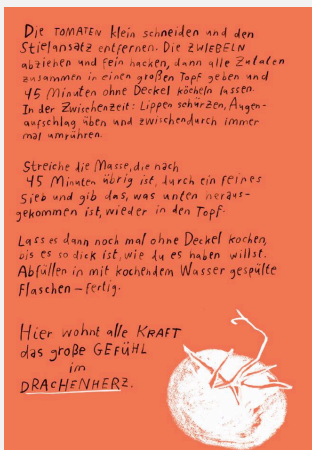 Die TOMATEN klein schneiden und den
Stielansatz entfernen. Die ZWIEBELN
abziehen und fein hacken, dann alle Zutaten
zusammen in einen großen Topf geben und
45 Minuten ohne Deckel köcheln lassen.
In der Zwischenzeit: Lippen schürzen, Augen-
aufschlag üben und zwischendurch immer
mal umrühren.
Streiche die Masse, die nach
45 Minuten übrig ist, durch ein feines
Sieb und gib das, was unten heraus-
gekommen ist, wieder in den Topf.
Lass es dann noch mal ohne Deckel kochen,
bis es so dick ist, wie du es haben willst.
Abfüllen in mit kochendem Wasser gespülte
Flaschen – fertig.
Hier wohnt alle KRAFT
das große GEFÜHL
im
DRACHENHERZ.